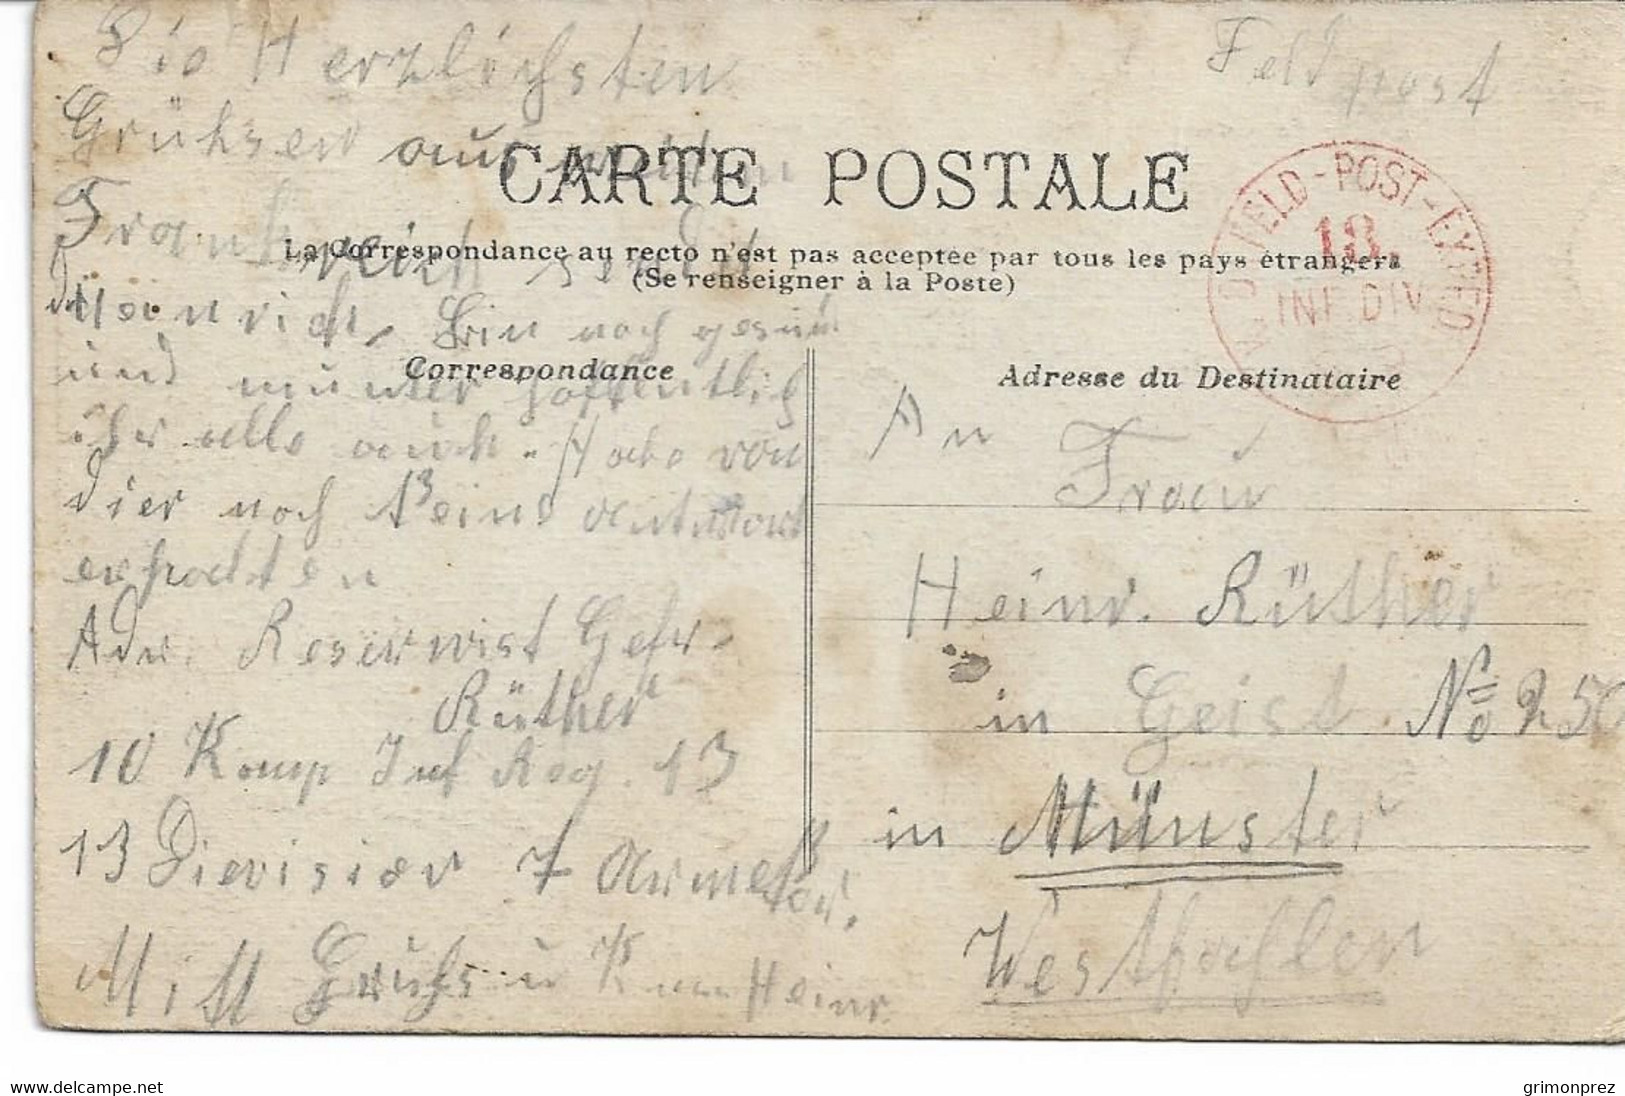 Die Herzlichsten
Grühsen aus weitem
Frankreich sendet
dir Heinrich. Bin noch gesünd
ünd munter hoffentlig
ihr alle auch. Habe von
dier noch keine antwort
erhalten
Adr. Reserwist Gefr.
Rüther
10 Komp Inf Reg. 13
13 Dievision 7 Armeekor.
Mitt Gruhs u K Heinr.
Feldpost
CARTE POSTALE
La Correspondance au recto n'est pas acceptée par tous les pays étrangers
(Se renseigner à la Poste)
Correspondance
Adresse du Destinataire
FELD-POST-EXPED
13.
INF. DIV.
An
Frau
Heinr. Rüther
in Geist. No 250
in Münster
Westpfahlen
delcampe.net
grimonprez